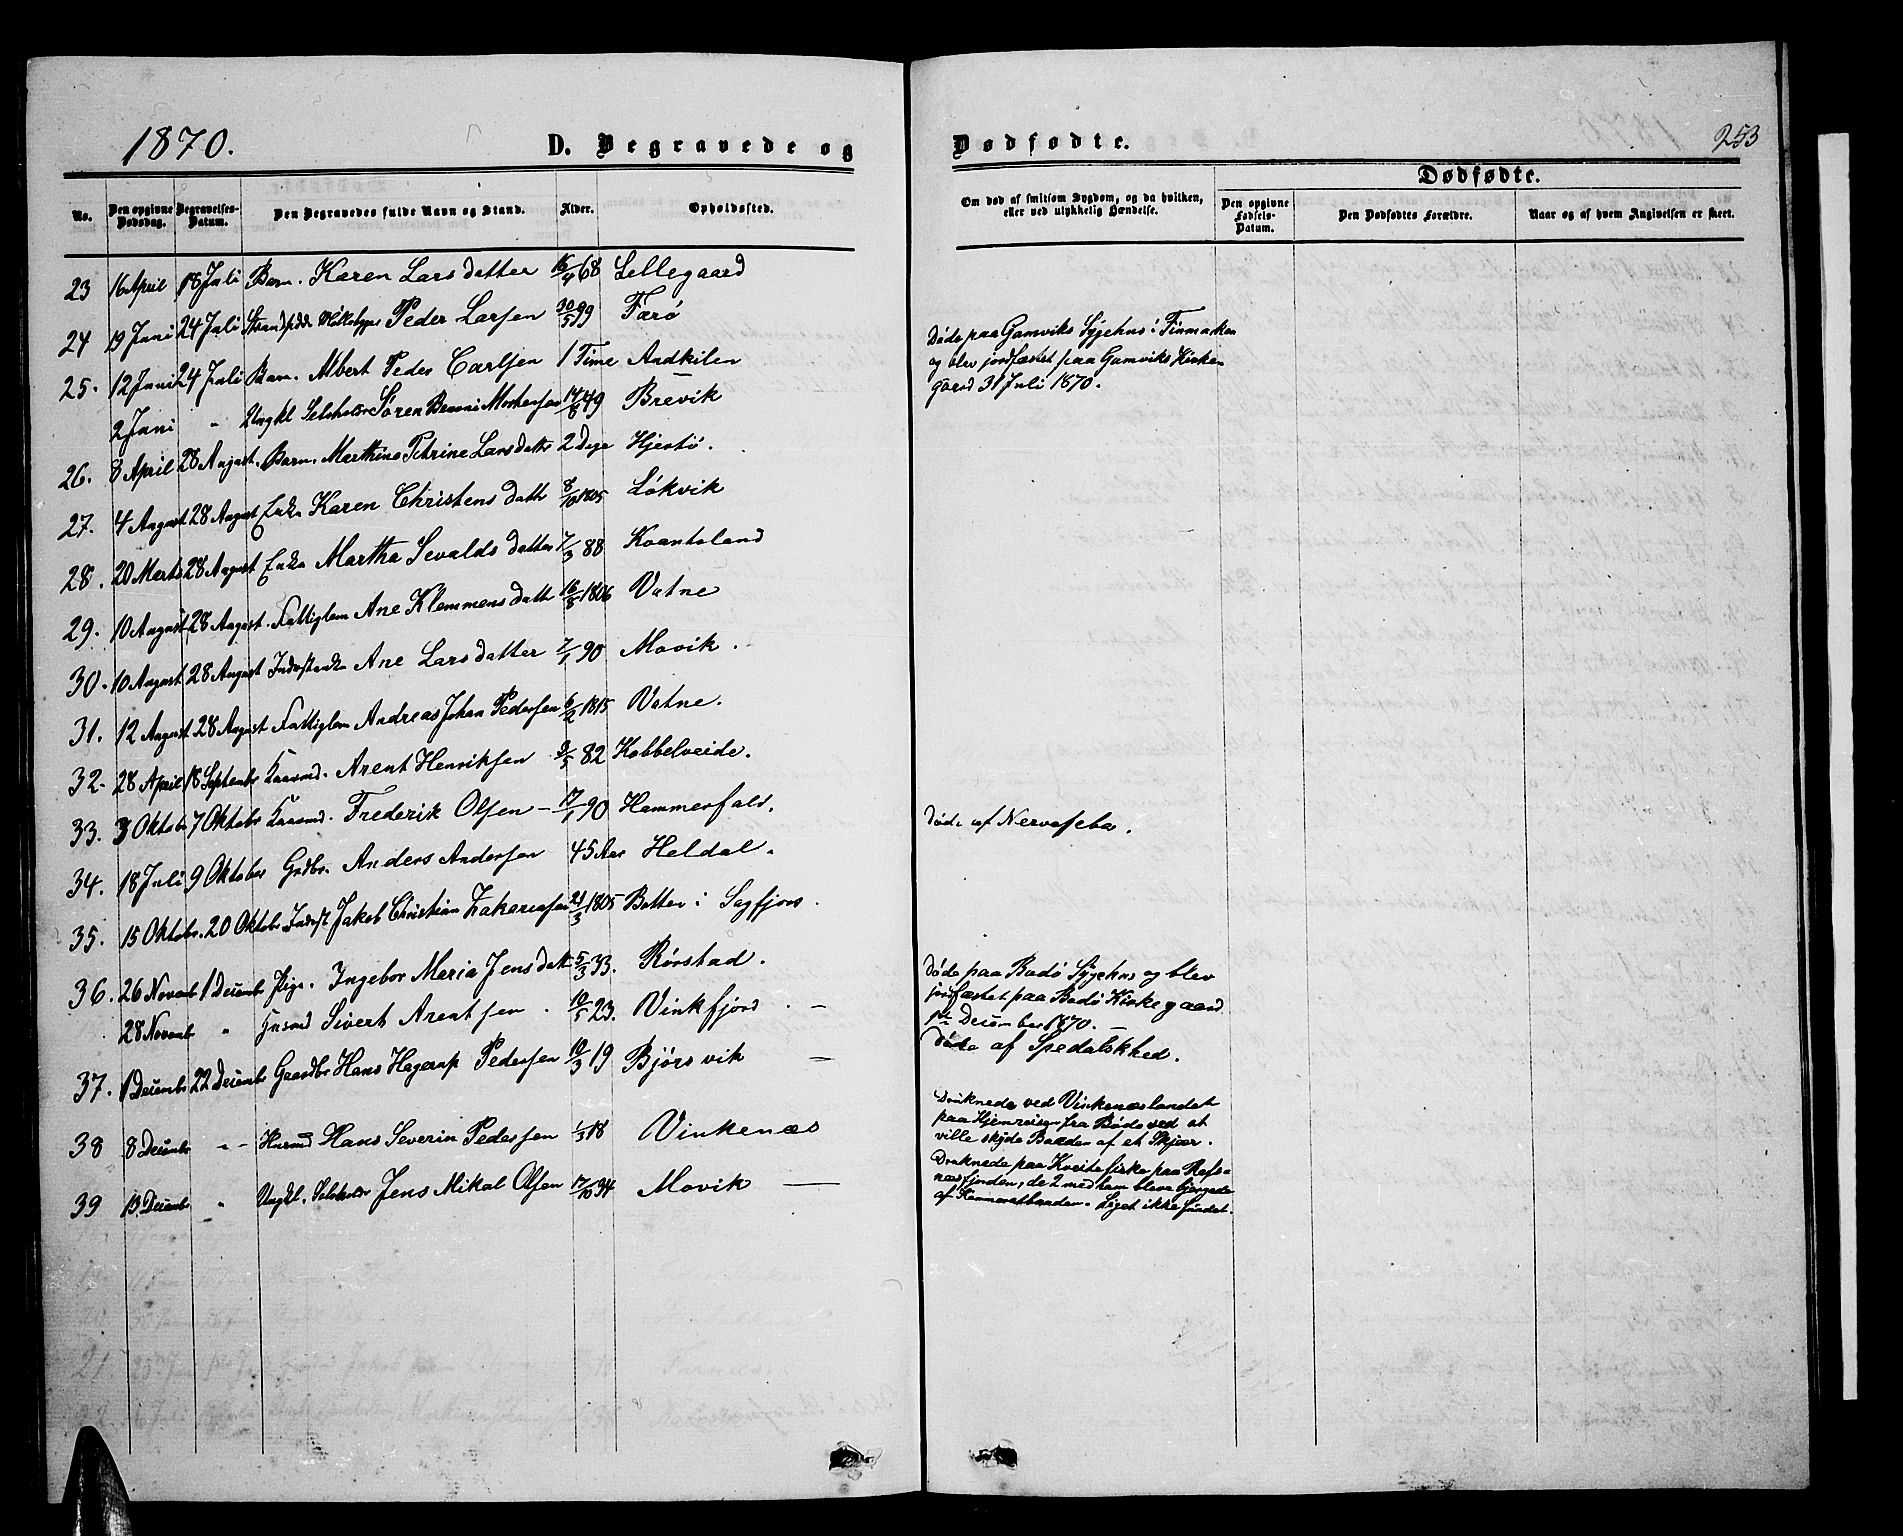 1870.
D. Begravede og
Dødfødte.
253
No.
Den opgivne Dødsdag.
Begravelses-Datum.
Den Begravedes fulde Navn og Stand.
Alder.
Opholdssted.
Om død af smitsom Sygdom, og da hvilken, eller ved ulykkelig Hændelse.
Dødfødte.
Den opgivne Fødsels-Datum.
Den Dødfødtes Forældre.
Naar og af hvem Angivelsen er skeet.
23 16 April 18 Juli Barn. Karen Larsdatter 16/4 68 Lellegaard
24 19 Juni 24 Juli Peder Larsen 30/5 99 Farø
25. 12 Juni 24 Juli Barn. Albert Peder Carlsen 1 Time Andkilen
2 Juni " Ungkl Søren Benoni Mortensen 14/8 49 Brevik
Døde paa Gamviks Sygehus i Finmarken
og blev jordfæstet paa Gamviks Kirke-
gaard 31 Juli 1870.
26. 8 April 28 August. Barn. Marthine Petrine Larsdattr 2 Dage Hjertø.
27. 4 August 28 August Enke Karen Christensdatt 8/10 1805 Løkvik
28. 20 Marts 28 August Enke Martha Sevaldsdatter 7/3 88 Kvantoland
29. 10 August 28 August. Fattiglem Ane Klemmensdatt 16/8 1806 Vatne
30. 10 August 28 August Ane Larsdatter 7/1 90 Movik.
31. 12 August 28 August Fattiglem Andreas Johan Pedersen 6/2 1815 Vatne.
32. 28 April 18 Septembr Kaarmd. Arent Henriksen 3/5 82 Kobbelveide.
33. 3 Oktobr 7 Oktobr Kaarmd. Frederik Olsen - 17/1 90 Hammerfald.
Døde af Nervefeber.
34. 18 Juli 9 Oktober Grdbr. Anders Andersen 45 Aar Heldal.
35. 15 Oktobr. 20 Oktobr Inderst Jakob Christian Zakariasen 21/3 1805 Botten i Sagfjord.
36. 26 Novembr 1 Decembr Pige. Ingebor Maria Jensdatt 5/3 33. Rørstad.
Døde paa Bodø Sygehus og blev
jordfæstet paa Bodø Kirkegaard
1ste December 1870. -
28 Novembr " Husmd Sivert Arentsen. 10/5 23. Vinkfjord. -
Døde af Spedalskhed.
37. 1 Decembr 22 Decembr Gaardbr Hans Hagerup Pedersen 10/3 19 Bjørsvik -
38 8 Decembr " Husmd Hans Severin Pedersen 1/3 18 Vinkenæs
Druknede ved Vinkenæslandet
paa Hjemreisen fra Bodø ved at
ville skyde Baaden af et Skjær.
39 13. Decembr " Ungkl. Jens Mikal Olsen 17/10 34 Movik -
Druknede paa Kveitefiske paa Refs-
næsfjorden, de 2 med ham bleve bjergede
af Kammeratbaaden. Liget ikke fundet.